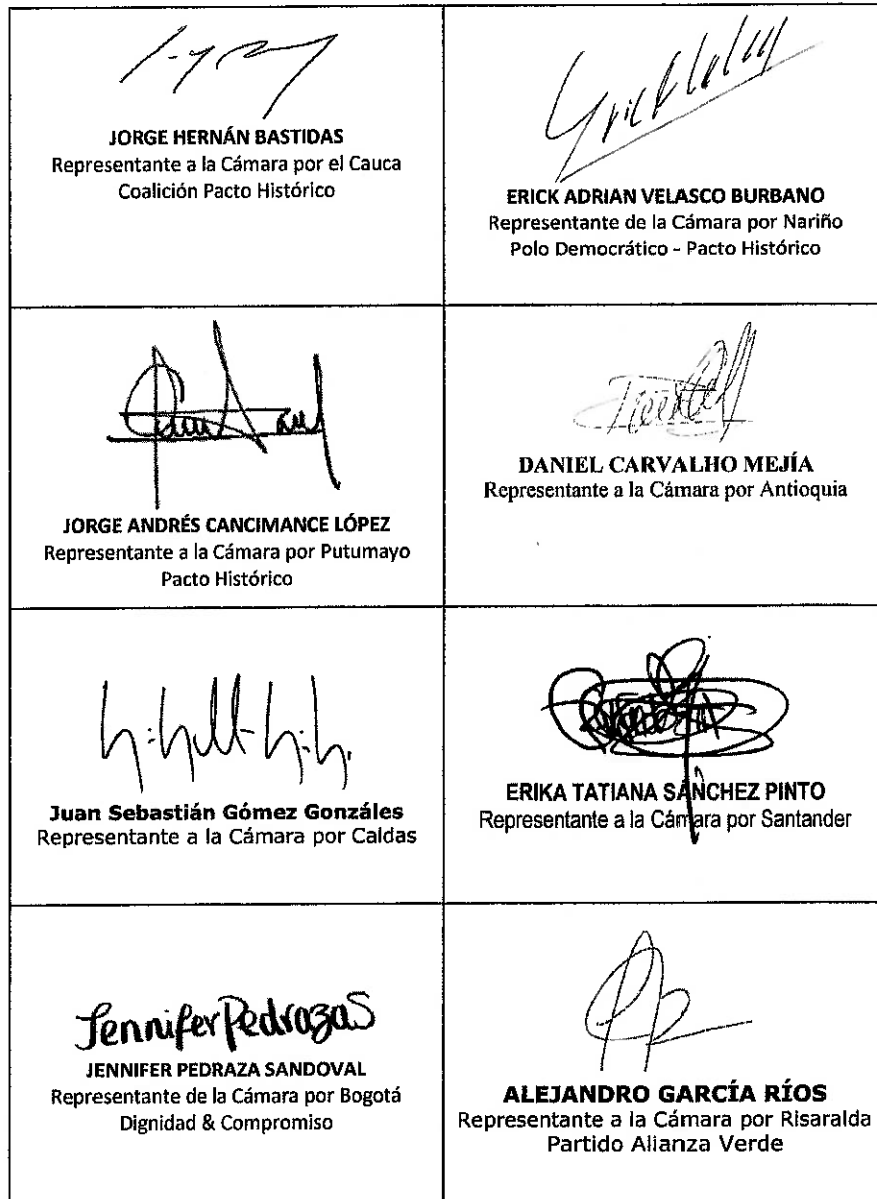 JORGE HERNÁN BASTIDAS
Representante a la Cámara por el Cauca
Coalición Pacto Histórico
ERICK ADRIAN VELASCO BURBANO
Representante de la Cámara por Nariño
Polo Democrático - Pacto Histórico
JORGE ANDRÉS CANCIMANCE LÓPEZ
Representante a la Cámara por Putumayo
Pacto Histórico
DANIEL CARVALHO MEJÍA
Representante a la Cámara por Antioquia
Juan Sebastián Gómez Gonzáles
Representante a la Cámara por Caldas
ERIKA TATIANA SÁNCHEZ PINTO
Representante a la Cámara por Santander
Jennifer Pedraza S
JENNIFER PEDRAZA SANDOVAL
Representante de la Cámara por Bogotá
Dignidad & Compromiso
ALEJANDRO GARCÍA RÍOS
Representante a la Cámara por Risaralda
Partido Alianza Verde